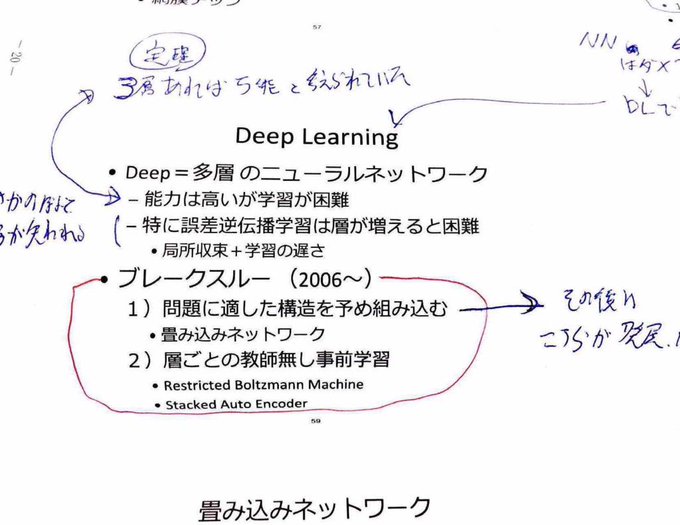 57
－20－
NN
はダメ
定理
3層あれば万能と考えられていた
DLで
Deep Learning
• Deep＝多層 のニューラルネットワーク
– 能力は高いが学習が困難
– 特に誤差逆伝播学習は層が増えると困難
• 局所収束＋学習の遅さ
さかのぼって
が失われる
• ブレークスルー （2006～）
１）問題に適した構造を予め組み込む
• 畳み込みネットワーク
２）層ごとの教師無し事前学習
• Restricted Boltzmann Machine
• Stacked Auto Encoder
その後は
こちらが発展
59
畳み込みネットワーク